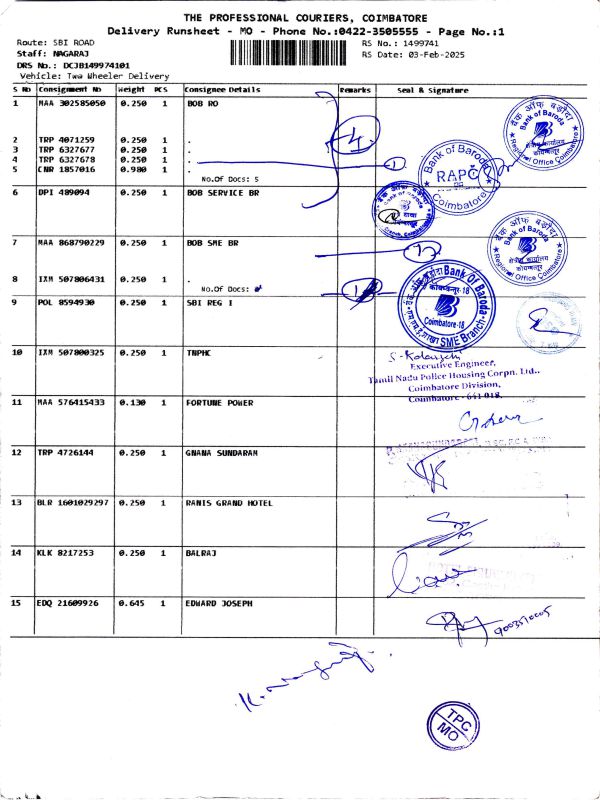 THE PROFESSIONAL COURIERS, COIMBATORE
Delivery Runsheet - MO - Phone No.:0422-3505555 - Page No.:1
Route: SBI ROAD
RS No.: 1499741
Staff: NAGARAJ
RS Date: 03-Feb-2025
DRS No.: DCJB149974101
Vehicle: Two Wheeler Delivery
S No Consignment No Weight PCS Consignee Details Remarks Seal & Signature
1 MAA 302585050 0.250 1 BOB RO
2 TRP 4071259 0.250 1 .
3 TRP 6327677 0.250 1 .
4 TRP 6327678 0.250 1 .
5 CNR 1857016 0.980 1 .
No.Of Docs: 5
4
1
बैंक ऑफ़ बड़ौदा
Bank of Baroda
क्षेत्रीय कार्यालय
कोयम्बत्तूर
Regional Office Coimbatore
Bank of Baroda
RAPC
Coimbatore
6 DPI 489094 0.250 1 BOB SERVICE BR
7 MAA 868790229 0.250 1 BOB SME BR
8 IXM 507806431 0.250 1 .
No.Of Docs:
बैंक ऑफ़ बड़ौदा
Bank of Baroda
क्षेत्रीय कार्यालय
कोयम्बत्तूर
Regional Office Coimbatore
Bank Of Baroda
Coimbatore-18
SME Branch
9 POL 8594930 0.250 1 SBI REG I
10 IXM 507800325 0.250 1 TNPHC
Executive Engineer,
Tamil Nadu Police Housing Corpn. Ltd.,
Coimbatore Division,
Coimbatore - 641 018.
11 MAA 576415433 0.130 1 FORTUNE POWER
12 TRP 4726144 0.250 1 GNANA SUNDARAM
13 BLR 1601029297 0.250 1 RANIS GRAND HOTEL
14 KLK 8217253 0.250 1 BALRAJ
15 EDQ 21609926 0.645 1 EDWARD JOSEPH
TPC
MO